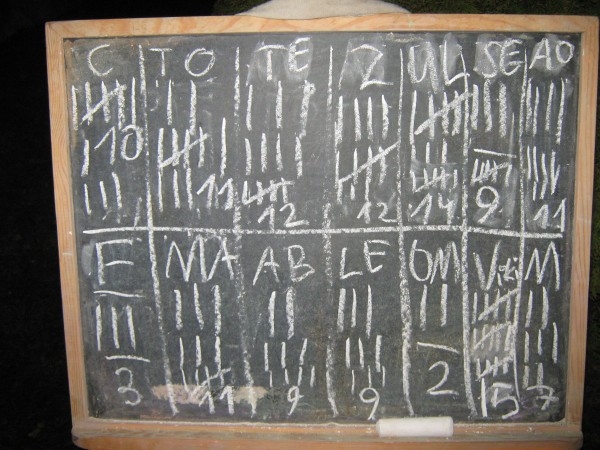 C TO TE Z UL SE AO
10 11 12 12 14 9 11
E MA AB LE OM Viti M
3 11 9 9 2 15 7